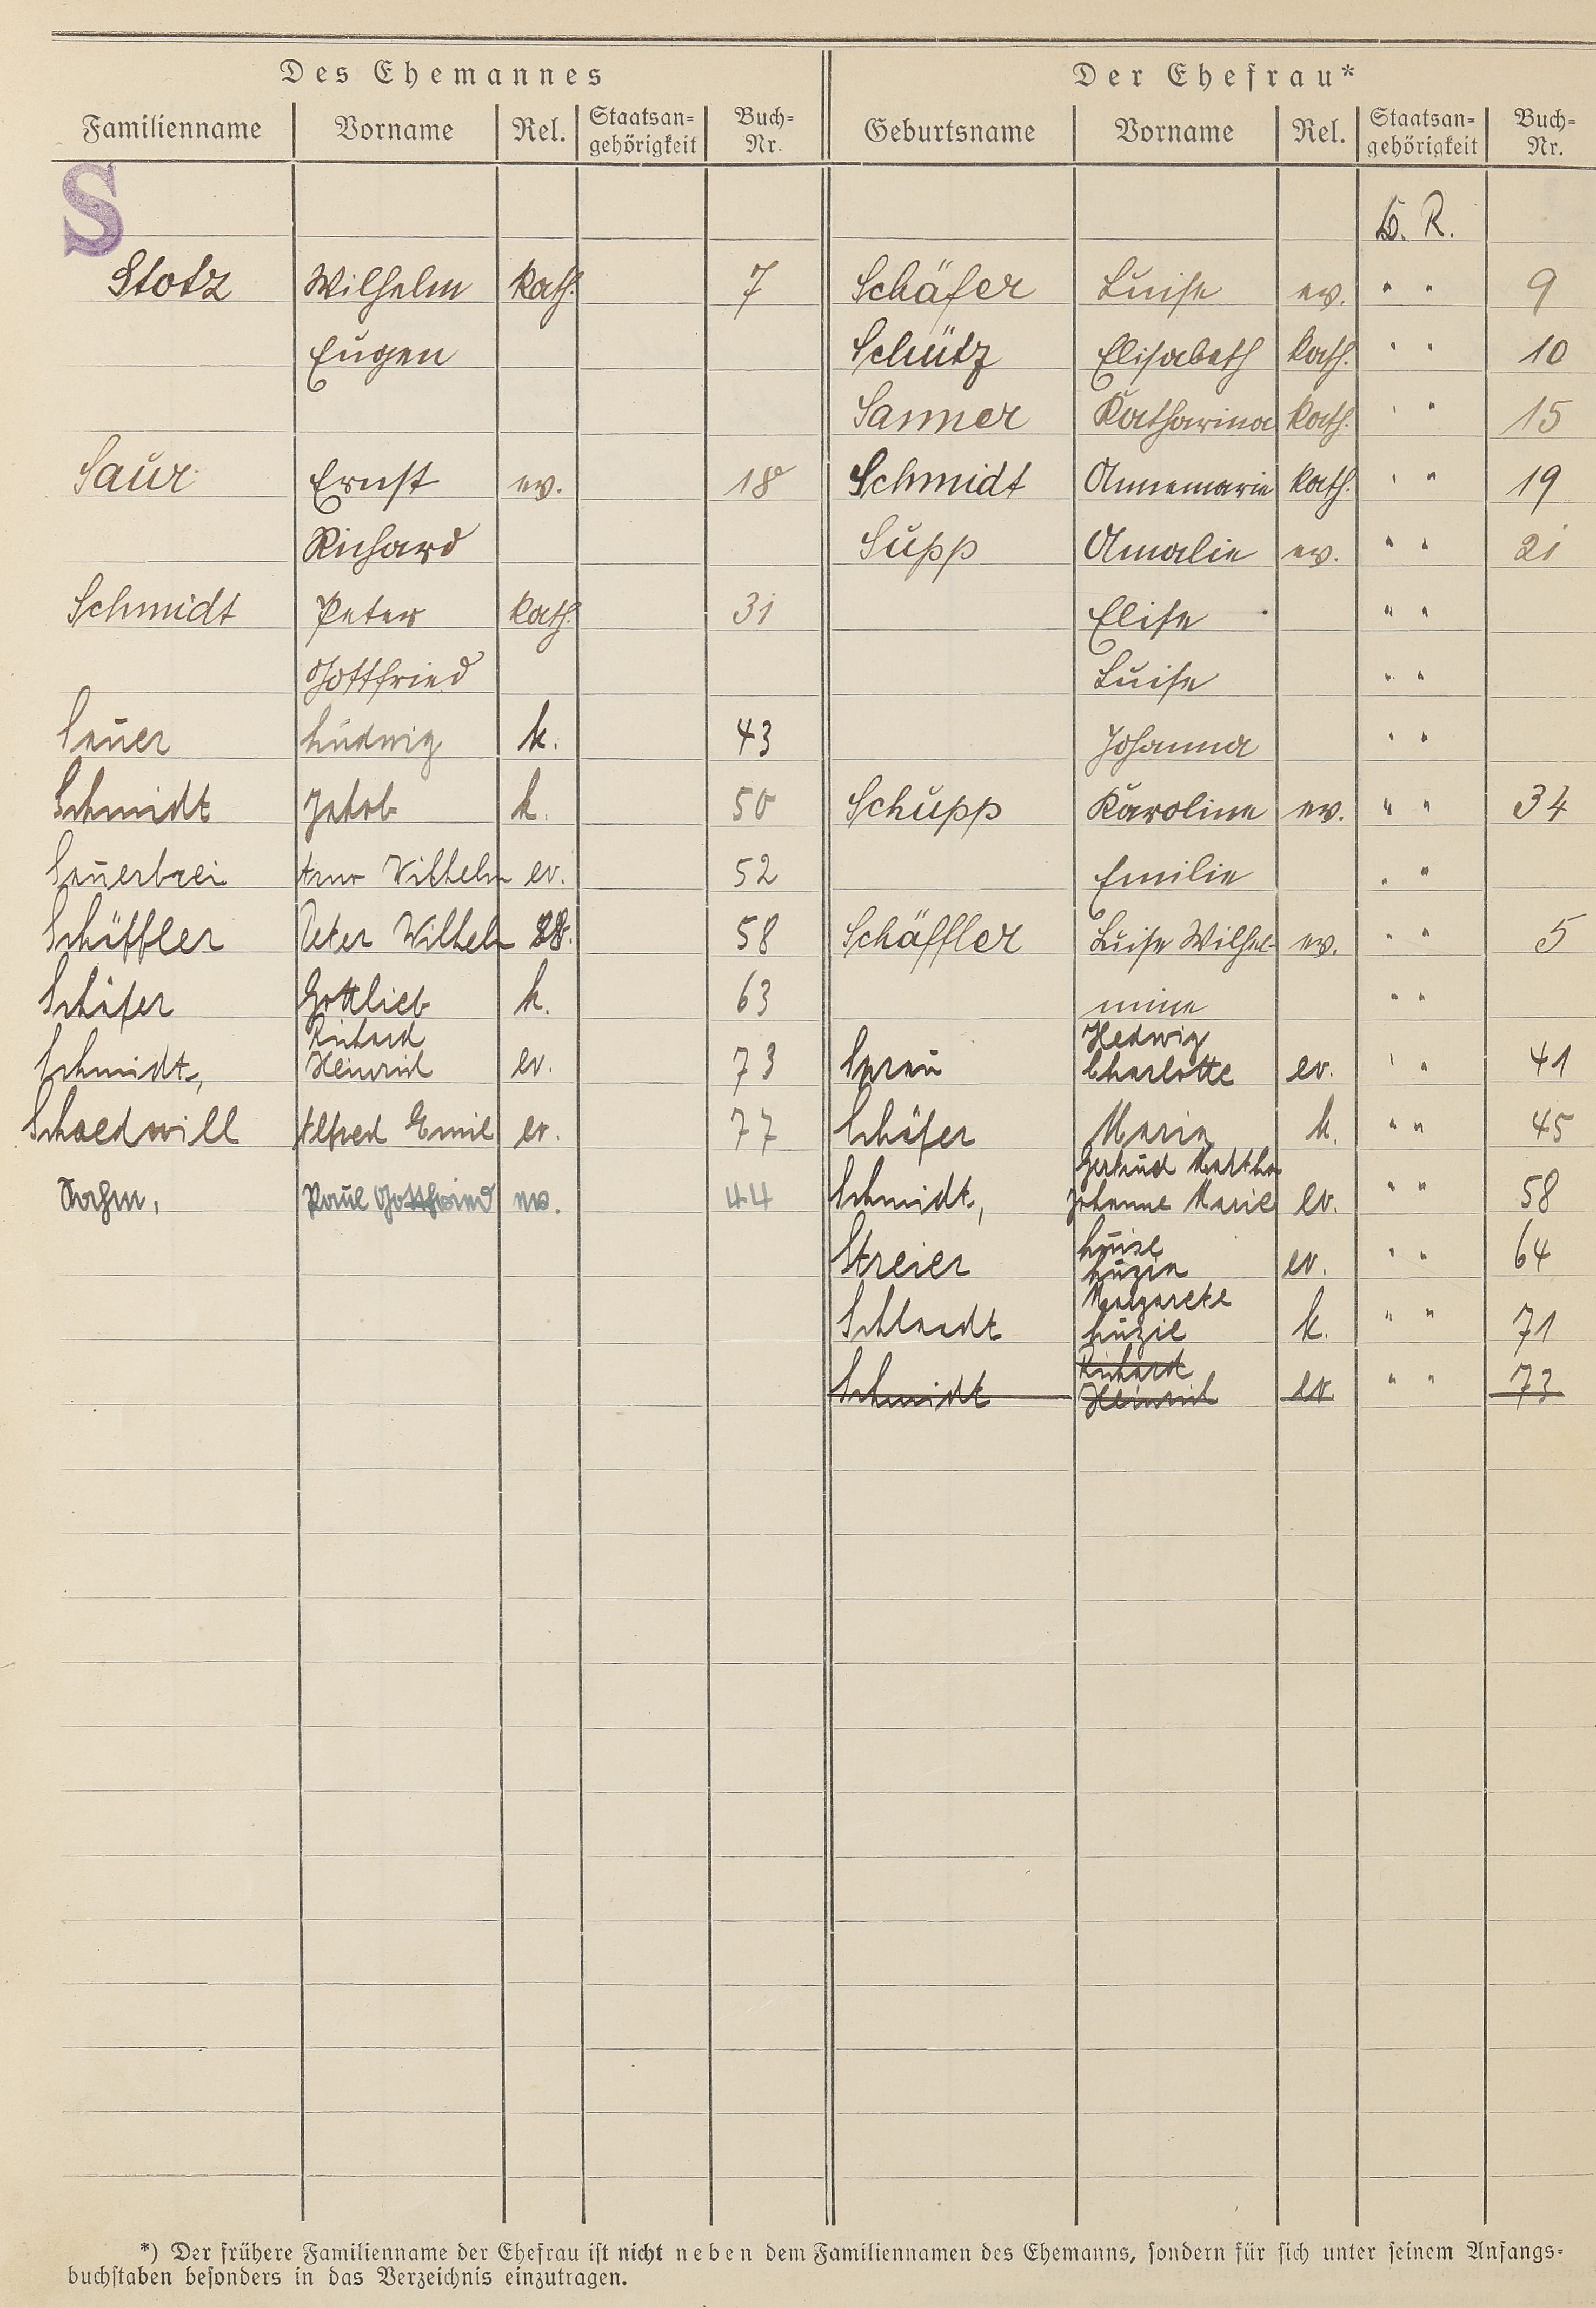 Des Ehemannes Der Ehefrau*
Familienname Vorname Rel. Staatsan- Buch- Geburtsname Vorname Rel. Staatsan- Buch-
gehörigkeit Nr. gehörigkeit Nr.
S
D. R.
Stotz Wilhelm kath. 7 Schäfer Luise ev. " " 9
Eugen Schütz Elisabeth kath. " " 10
Sanner Katharina kath. " " 15
Saur Ernst ev. 18 Schmidt Annemarie kath. " " 19
Richard Supp Amalie ev. " " 21
Schmidt Peter kath. 31 Elise " "
Gottfried Luise " "
Sauer Ludwig k. 43 Johanna " "
Schmidt Jakob k. 50 Schupp Karoline ev. " " 34
Sauerbrei Arno Wilhelm ev. 52 Emilie " "
Schäffler Peter Wilhelm 58 Schäffler Luise Wilhel- ev. " " 5
Schäfer Gottlieb k. 63 mine " "
Richard Hedwig
Schmidt, Heinrich ev. 73 Sprau Charlotte ev. " " 41
Schaedwill Alfred Emil ev. 77 Schäfer Maria k. " " 45
Gertrud Martha
Paul Gottfried ev. 44 Schmidt, Johanne Marie ev. " " 58
Luise
Streier Luzia ev. " " 64
Margarete
Schladt Luzie k. " " 71
Richard
Schmidt Heinrich ev. " " 73
*) Der frühere Familienname der Ehefrau ist nicht neben dem Familiennamen des Ehemanns, sondern für sich unter seinem Anfangs-
buchstaben besonders in das Verzeichnis einzutragen.